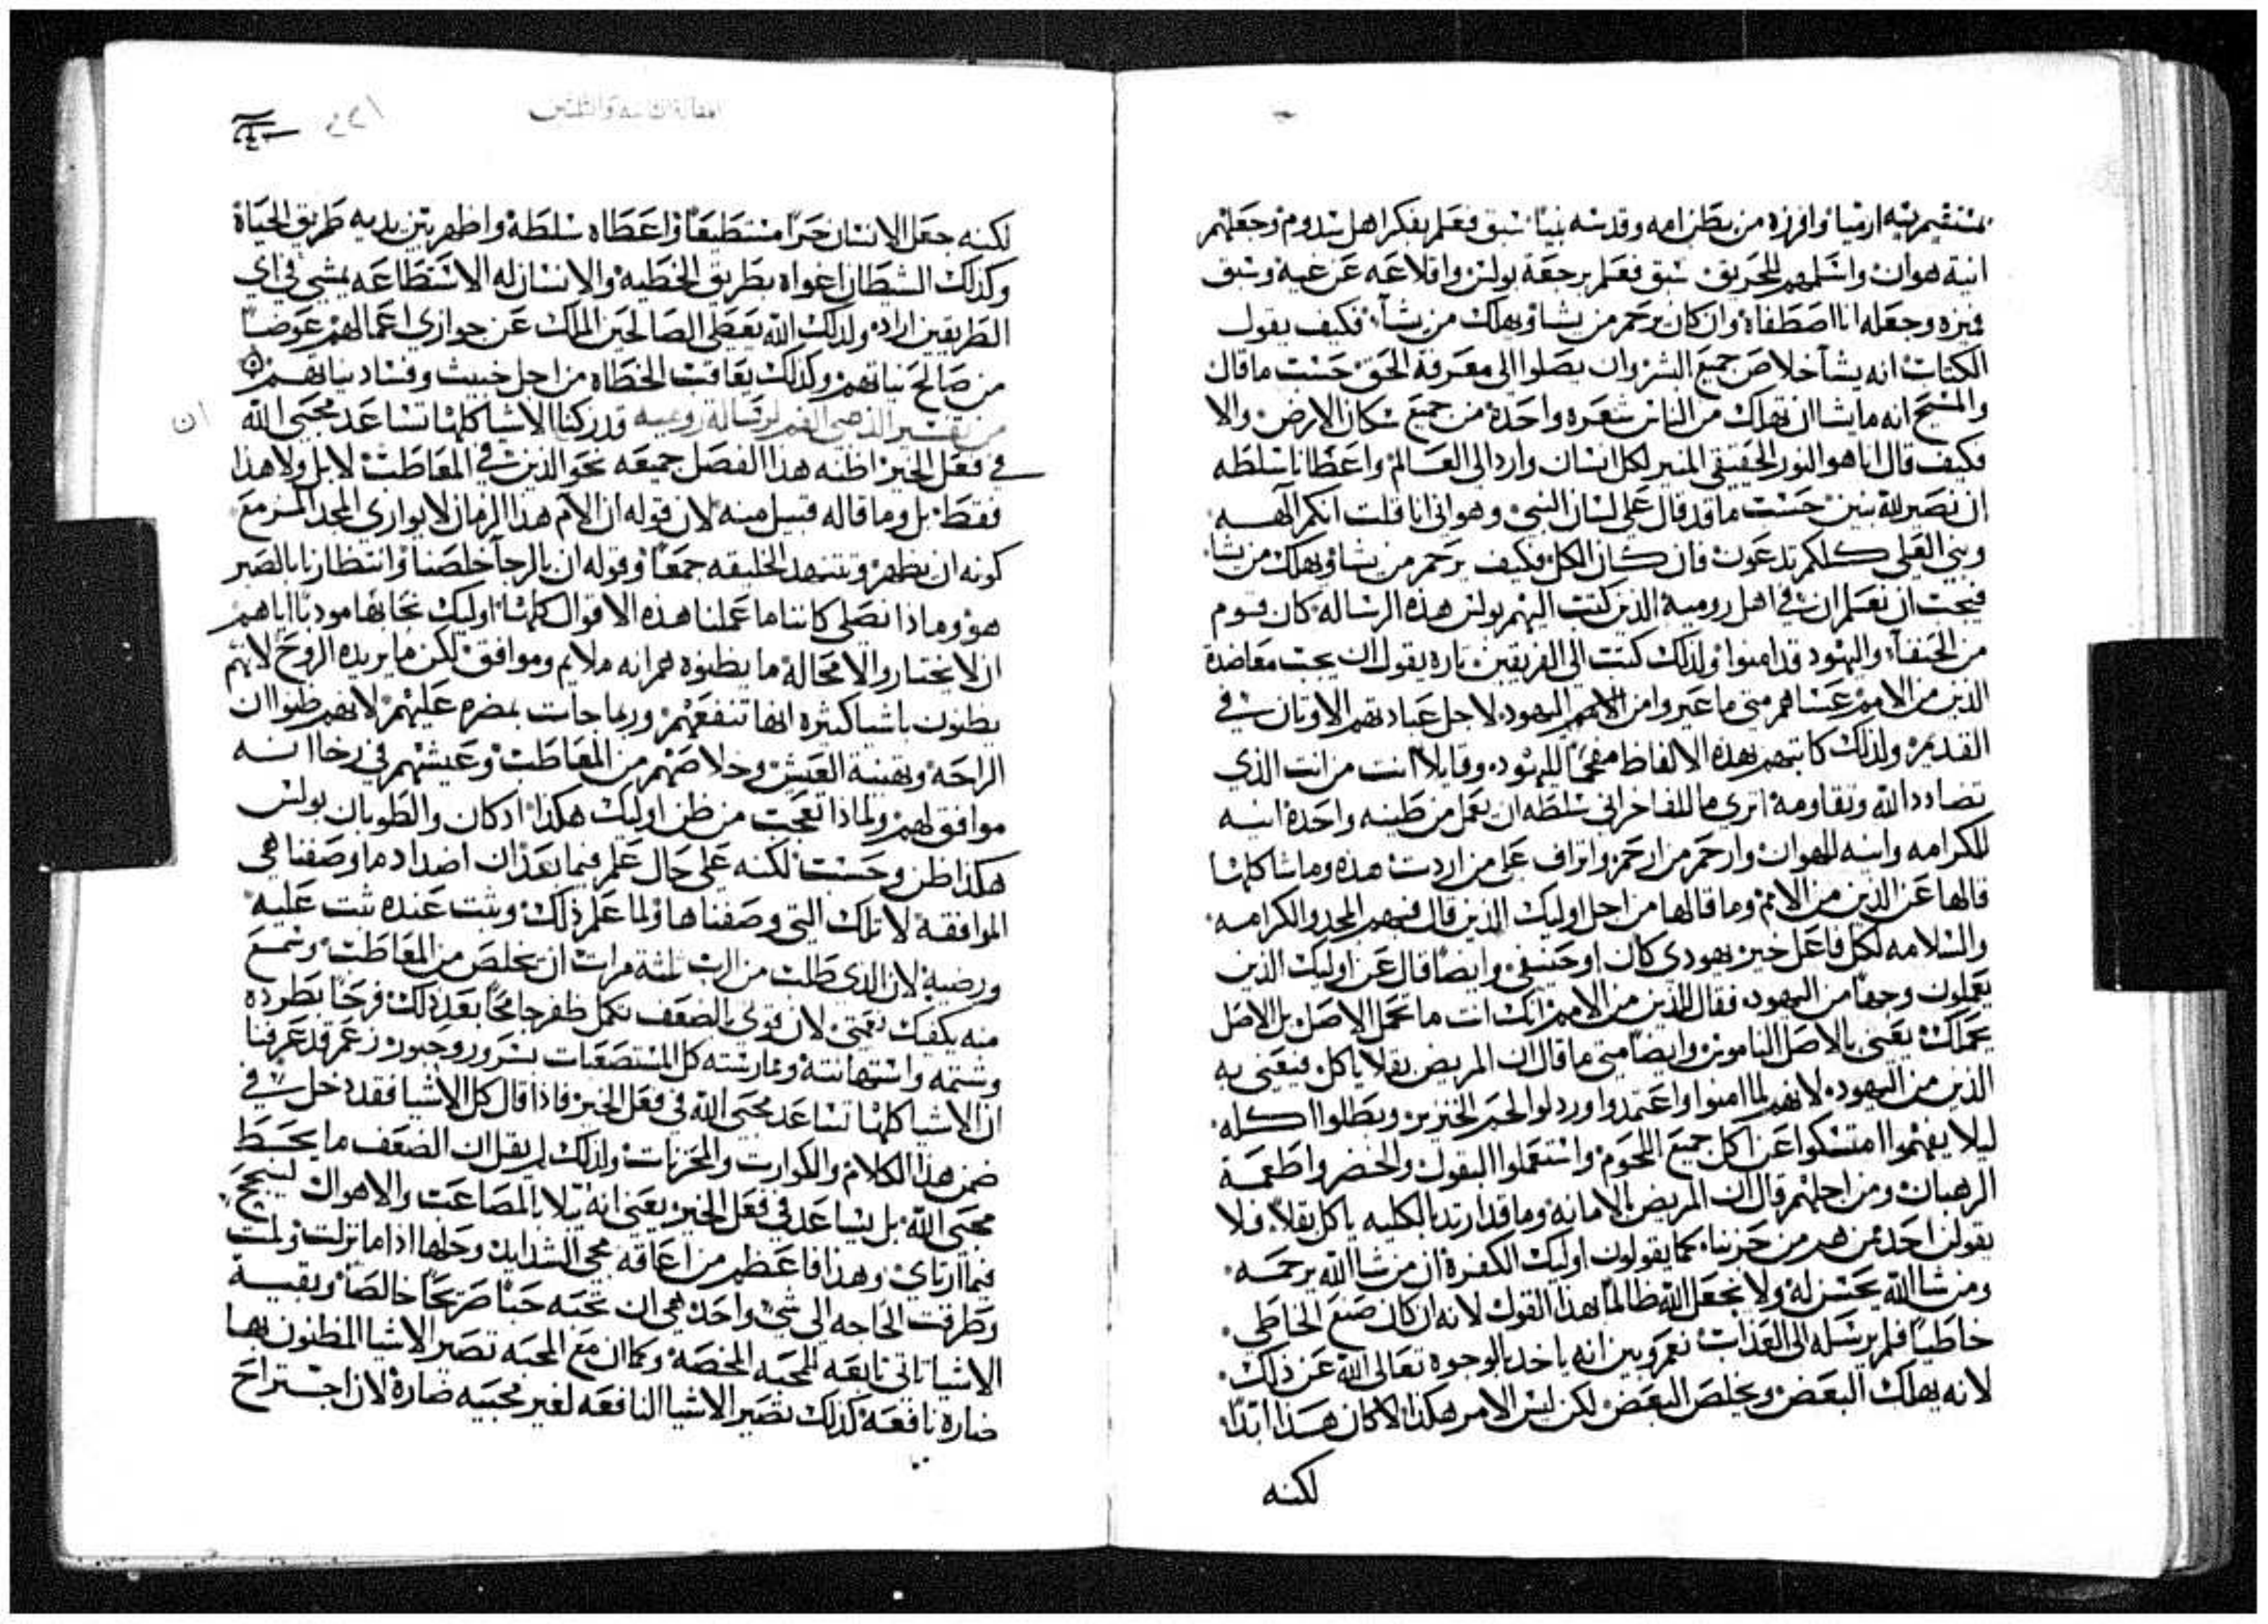 بمستقيم نيه ارميا وافرزه من بطن امه وقدسه نبيا سبق فعلم بفكر اهل سدوم وجعلهم
انية هوان واسلمهم للحريق سبق فعلم برجعة بولس واقلاعه عن غيه وسبق
فميزه وجعله انا اصطفاه وان كان يرحم من يشا ويهلك من يشآ فكيف يقول
الكتاب انه يشآ خلاص جميع البشر وان يصلوا الى معرفة الحق حسب ما قال
والمسيح انه ما يشا ان تهلك من الناس شعره واحدة من جميع سكان الارض والا
فكيف قال انا هو النور الحقيقي المنير لكل انسان وارد الى العالم واعطانا سلطه
ان نصير لله بنين حسب ما قد قال على لسان النبي وهو اني انا قلت انكم آلهه
وبني العلي كلكم تدعون فان كان الكل فكيف يرحم من يشا ويهلك من يشا
فيجب ان نعلم ان في اهل رومية الذين كتب اليهم بولس هذه الرساله كان قوم
من الحنفآ واليهود قد امنوا ولذلك كتب الى الفريقين تاره يقول ان يجب معاضدة
الذين من الامم عساهم متى ما عيروا من اليهود لاجل عبادتهم الاوتان في
القديم ولذلك كاتبهم بهذه الالفاظ مفحما لليهود وقايلا انت من انت الذي
تضادد الله وتقاومه اترى ما للفاخراني سلطه ان يعمل من طينه واحدة انيه
للكرامه وانيه للهوان وارحم من ارحم واتراف على من اردت هذه وما شاكلها
قالها عن الذين من الامم وما قالها من اجل اوليك الذين قال فيهم المجد والكرامه
والسلامه لكل فاعل خير يهودي كان او حنيفي وايضا قال عن اوليك الذين
يعملون وحقا من اليهود فقال للذين من الامم انك انت ما تحمل الاصل بل الاصل
يحملك يعني بالاصل الناموس وايضا متى ما قال ان المريض بقلا ياكل فيعني به
الذين من اليهود لانهم لما امنوا واعتمدوا وردلوا لحم الخنزير وبطلوا اكله
ليلا يفهموا امتسكوا عن اكل جميع اللحوم واستعملوا البقول والخضر واطعمة
الرهبان ومن اجلهم قال ان المريض بالامانه وما قد ارتد بالكليه ياكل بقلا فلا
يقولن احد من هم من حزبنا كما يقولون اوليك الكفرة ان من شا الله يرحمه
ومن شا الله يحسن له ولا نجعل الله ظالما بهذا القول لانه ان كان صنع الخاطي
خاطيا فلم يرسله الى العذاب نعم وبين انه ياخد بالوجوه تعالى الله عن ذلك
لانه يهلك البعض ويخلص البعض لكن ليس الامر هكذا لا كان هذا ابدا
لكنه
لكنه جعل الانسان حرا مستطيعا واعطاه سلطة واظهر بين يديه طريق الحياة
وكذلك الشيطان اغواه بطريق الخطيه والانسان له الاستطاعه يمشي في اي
الطريقين اراد ولذلك الله يعطي الصالحين الملك عن جوازي اعمالهم عوضا
من صالح نياتهم وكذلك يعاقب الخطاه من اجل خبيث وفساد نياتهم
من تفسير الذهبي الفم لرسالة روميه قد ركنا الاشيا كلها تساعد محبي الله
ان
في فعل الخير اظنه هذا الفصل جميعه نحو الذين في المعاطب لا بل ولا هذا
فقط بل وما قاله قبيل منه لان قوله ان الآم هذا الزمان لا يوازي المجد المزمع
كونه ان يظهر وتتنهد الخليقه جمعا وقوله ان بالرجآ خلصنا وانتظارنا بالصبر
هو وماذا نصلي كاننا ما عملنا هذه الاقوال كلها اوليك نحا بها مودبا اياهم
ان لا يختاروا لا محالة ما يظنوه هم انه ملايم وموافق لكن ما يريده الروح لانهم
يظنون باشيا كثيره انها تنفعهم وربما جات بمضره عليهم لانهم ظنوا ان
الراحه وبقية العيش وخلاصهم من المعاطب وعيشهم في رخا انه
موافق لهم ولماذا تعجب من ظن اوليك هكذا اذ كان والطوبان بولس
هكذا ظن وحسب لكنه على حال علم فيما بعد ان اضداد ما وصفنا هي
الموافقة لا تلك التي وصفناها ولما علم ذلك وثبت عنده ثبت عليه
ورضيه لان الذي طلب من الرب ثلثة مرات ان يخلص من المعاطب وسمع
منه يكفك نعمتي لان قوتي بالضعف تكمل طفر جامحا بعد ذلك فرحا بطرده
وشتمه واستهانته وممارسته كل المستصعبات بسرور وحبور زعم قد عرفنا
ان الاشيا كلها تساعد محبي الله في فعل الخير فاذا قال كل الاشيا فقد دخل في
ضمن هذا الكلام والكوارث والمحزنات ولذلك لم يقل ان الضعف ما يحبط
محبي الله بل يساعد في فعل الخير يعني انه يبلا بالمصاعب والاهوال لينجح
فيما ارتاي وهذا فاعظم من اعاقه مجي الشدايد وحلها اذا ما نزلت ولمت
وطرقت الحاجه الى شي واحد هي ان تحبه حبا صريحا خالصا وبقية
الاشيا تاتي تابعه للمحبه المخصه وكما ان مع المحبه تصير الاشيا المظنون بها
ضارة نافعة كذلك تصير الاشيا النافعه لغير محبيه ضارة لان اجتراح